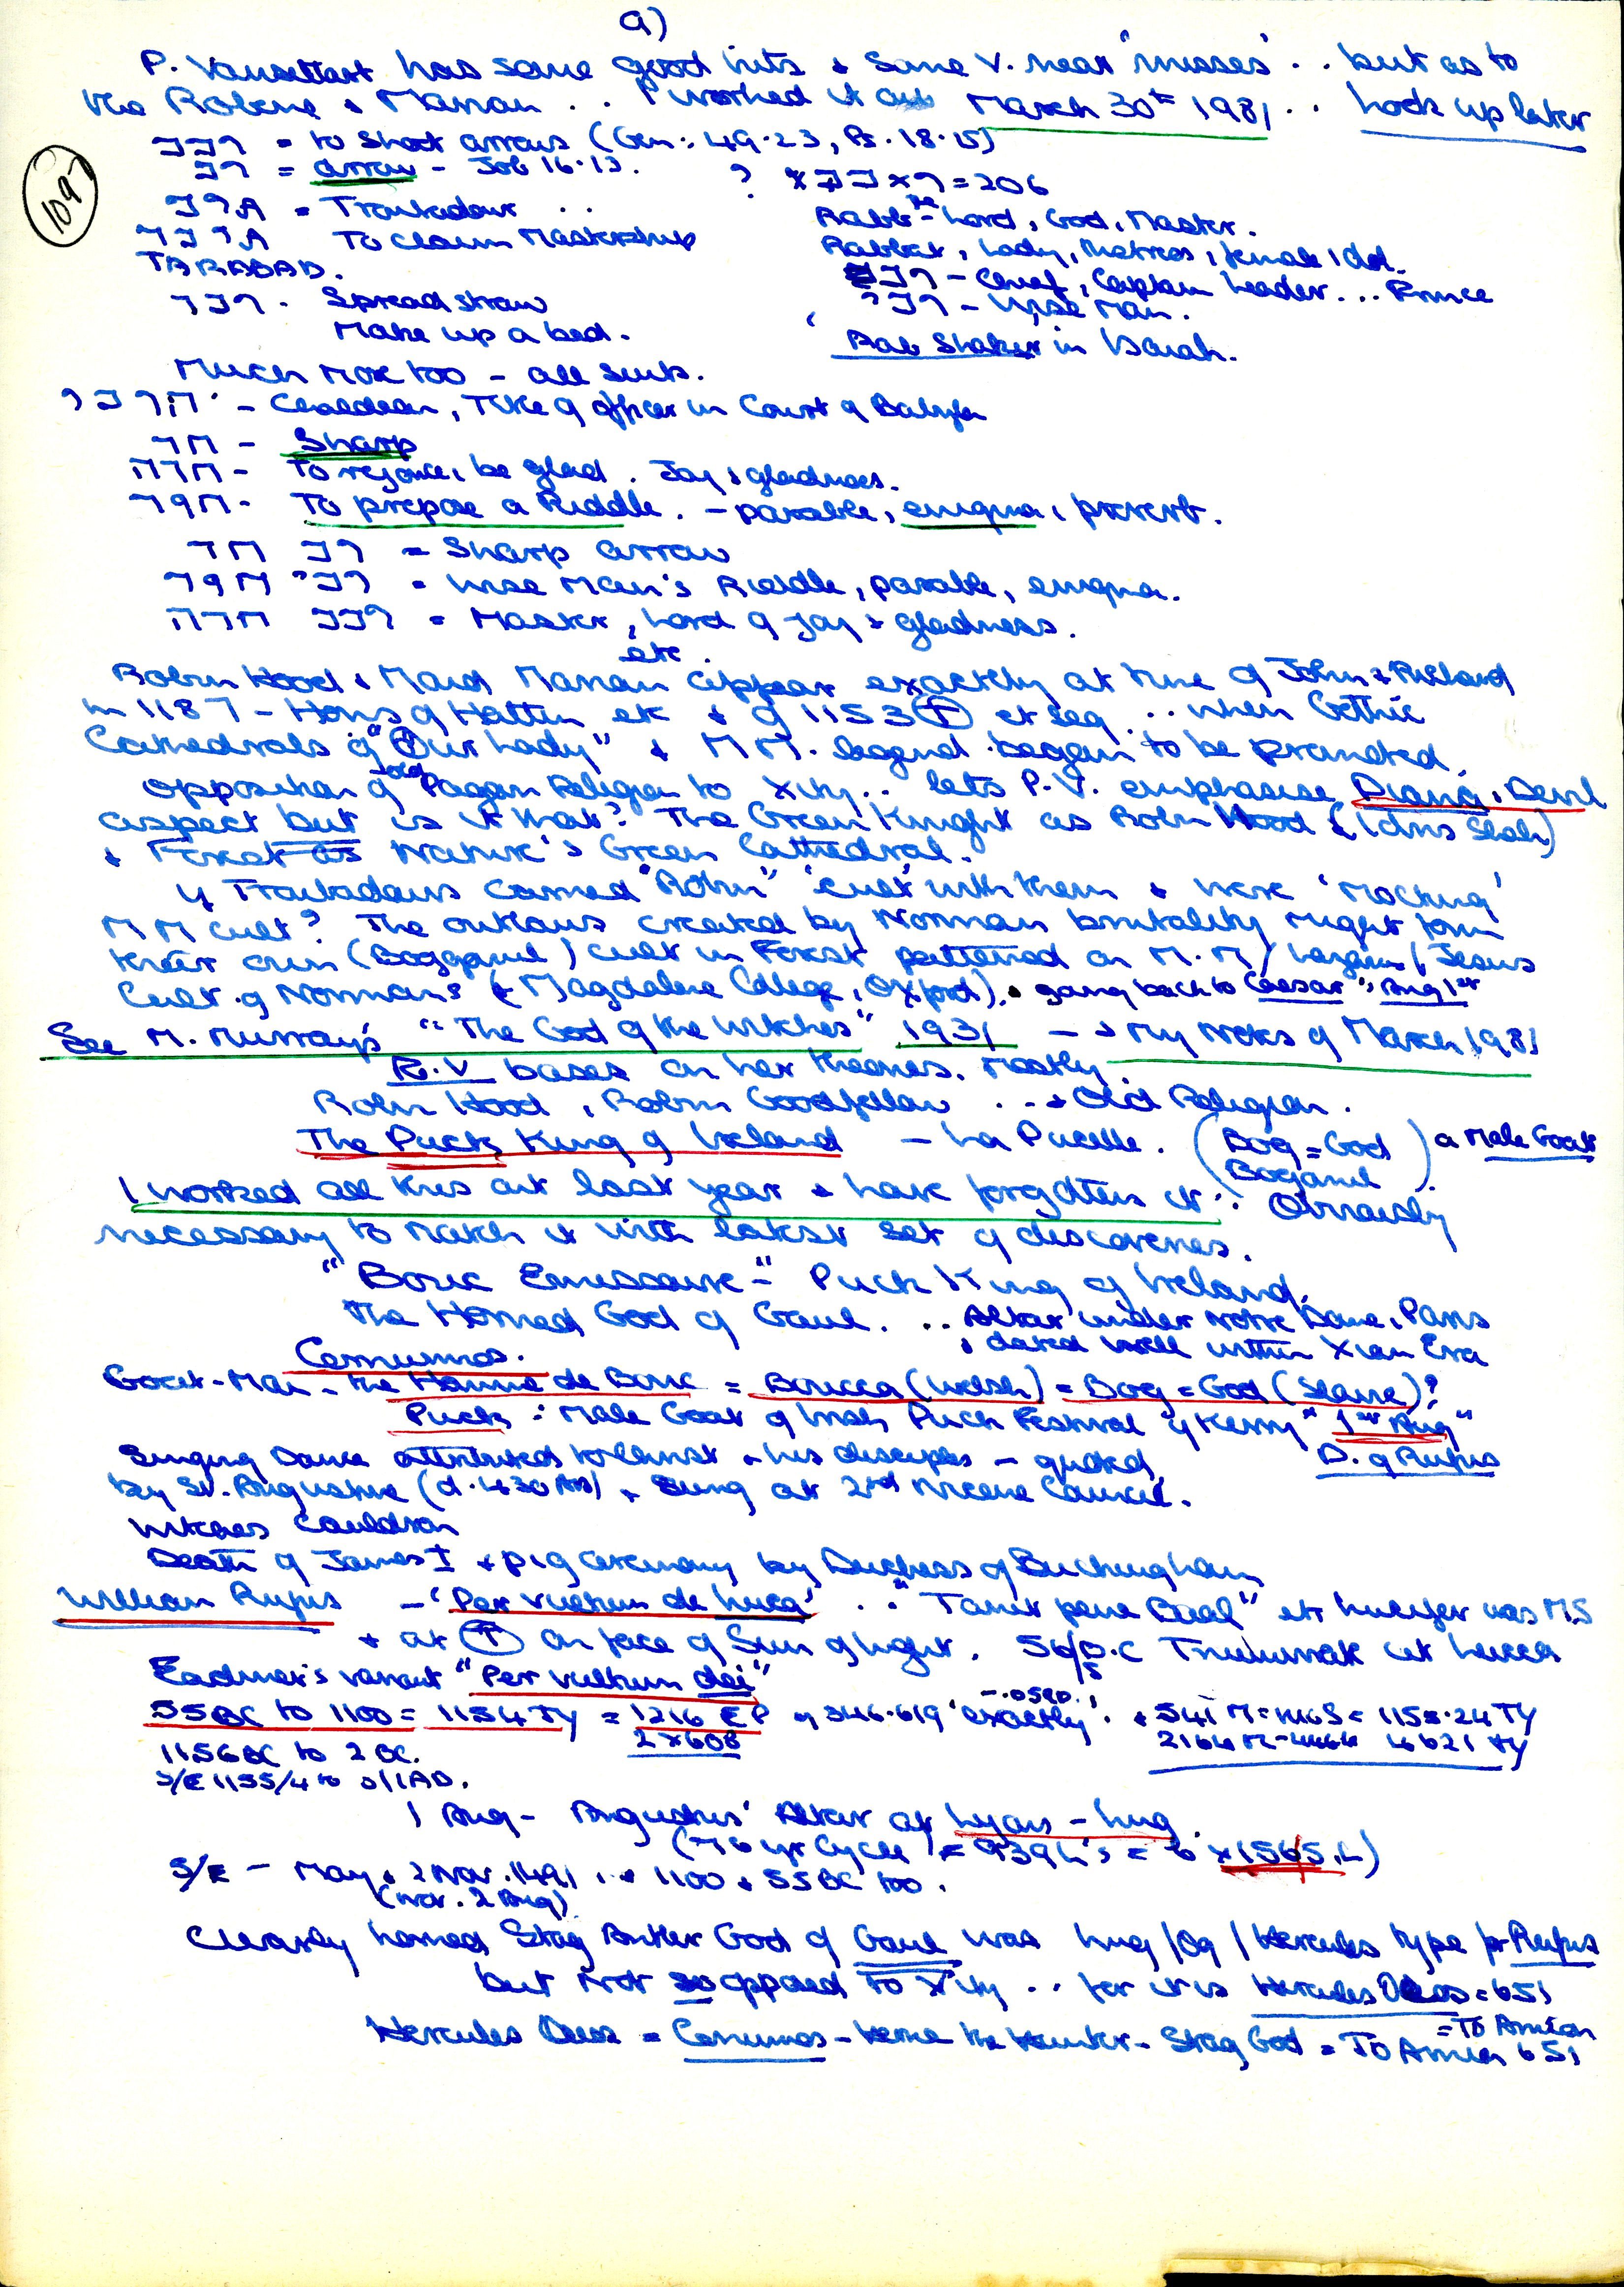 9)
P. Vansittart has some good hits & some v. near 'misses' .. but as to
the Robene & Marian .. I worked it out March 30th 1981 .. Look up later
1097
רבב = to shoot arrows (Gen: 49.23, Ps. 18.15)
רב = arrow - Job 16.13.
? = 206
= Troubadour ..
Rabb - Lord, God, Master.
To claim Mastership
Rabbat, Lady, Mistress, female idol.
TARABAB.
רבב - Chief, Captain Leader ... Prince
רבד. Spread straw
רבי - Wise Man.
Make up a bed.
Rab Shakeh in Isaiah.
Much more too - all suits.
- Chaldean, Title of officer in Court of Babylon
חד - Sharp
חדה - To rejoice, be glad. Joy & gladness.
חוד - To propose a Riddle. - parable, enigma, proverb.
רב חד = Sharp arrow
רבי חוד = Wise Man's Riddle, parable, enigma.
רבב חדה = Master, Lord of joy & gladness.
etc.
Robin Hood & Maid Marian appear exactly at time of John & Richard
in 1187 - Horns of Hattin etc & of 1153 et seq .. when Gothic
Cathedrals of "Our Lady" & M M. legend began to be promoted.
opposition of old Pagan Religion to Xity .. lets P.V. emphasise Diana, Devil
aspect but is it that? The Green Knight as Robin Hood & (Idris Shah)
& Forest as Nature's Green Cathedral.
If Troubadours carried "Robin" 'cult' with them & were 'mocking'
M M cult? The outlaws created by Norman brutality might form
their own (Bogomil) cult in Forest patterned on M.M/ Lazarus/Jesus
Cult of Normans (& Magdalene College, Oxford), & going back to Caesar's Aug 1st
See M. Murray's "The God of the Witches" 1931 -> My Notes of March 1981
P.V bases on her themes. Mostly.
Robin Hood, Robin Goodfellow ...> Old Religion.
The Puck King of Ireland - La Pucelle. (Bog = God ) a Male Goat
Bogomil
I worked all this out last year & have forgotten it. Obviously
necessary to match it with latest set of discoveries.
"Bouc Emissaire" - Puck King of Ireland.
The Horned God of Gaul. .. Altar under Notre Dame, Paris
, dated well within Xian Era
Cernunnos.
Goat-Man - the Homme de Bouc = Boucca (Welsh) = Bog = God (Slavic)?
Puck = Male Goat of Irish Puck Festival of Kerry "1st Aug"
Singing Dance attributed to Christ & his disciples - quoted
D. of Rufus
by St. Augustine (d. 430 AD) & Sung at 2nd Nicene Council.
Witches Cauldron
Death of James I & pig ceremony by Duchess of Buckingham
William Rufus - 'Per Vultum de Luca' .. "Tanit pene Baal" etc Lucifer was MS
& at on face of Sun of light. 56/5 B.C Triumvirate at Lucca
Eadmer's variant "Per vultum dei"
55 BC to 1100 = 1154 TY = 1216 EP 346.619 'exactly'. & 541 M = = 1155.24 TY
2 x 608
2164 M - 4621 TY
1156 BC to 2 BC.
S/E 1155/4 to 0/1 AD.
1 Aug - Augustus' Altar at Lyons - Lug.
(76 yr Cycle = 939 L's = 6 x 156.5 L)
S/E - May & 2 Nov. 1491 .. & 1100 & 55 BC too.
(not. 2 Aug)
Clearly horned Stag Antler God of Gaul was Lug/Og/Hercules type for Rufus
but not so opposed to Xity .. for it is Hercules Deus = 651
= To Amien
Hercules Deus = Cernunnos - Herne the Hunter - Stag God = To Amien 651